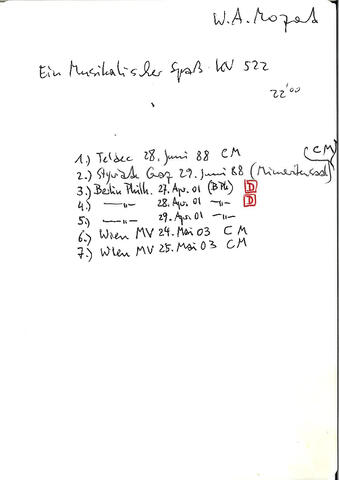 W.A. Mozart
Ein Musikalischer Spaß KV 522
22'00
(CM)
1.) Teldec 28. Juni 88 CM
2.) Styriarte Graz 29. Juni 88 (Minoritensaal)
3.) Berlin Philh. 27. Apr. 01 (BPh) D
4.) —"— 28. Apr. 01 —"— D
5.) —"— 29. Apr. 01 —"—
6.) Wien MV 24. Mai 03 CM
7.) Wien MV 25. Mai 03 CM